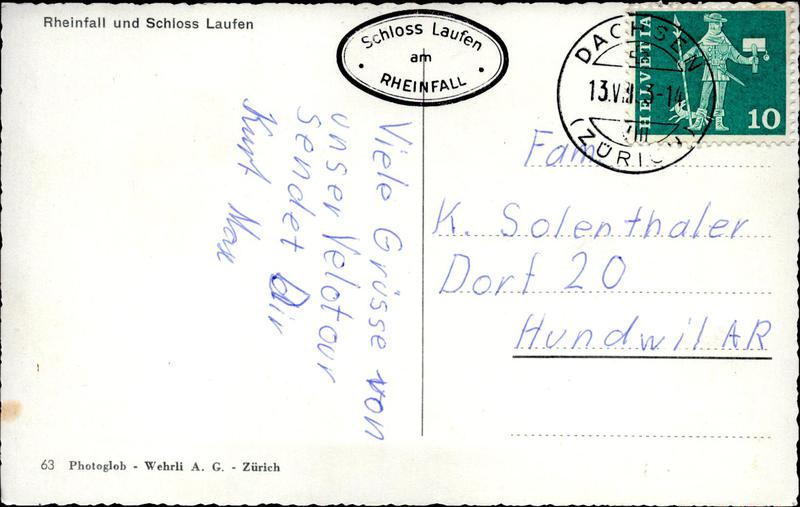 Rheinfall und Schloss Laufen
Schloss Laufen
am
RHEINFALL
DACHSEN
(ZÜRICH)
HELVETIA
10
Viele Grüsse von
unser Velotour
sendet Dir
Kurt Max
Fam
K. Solenthaler
Dorf 20
Hundwil AR
63 Photoglob - Wehrli A. G. - Zürich